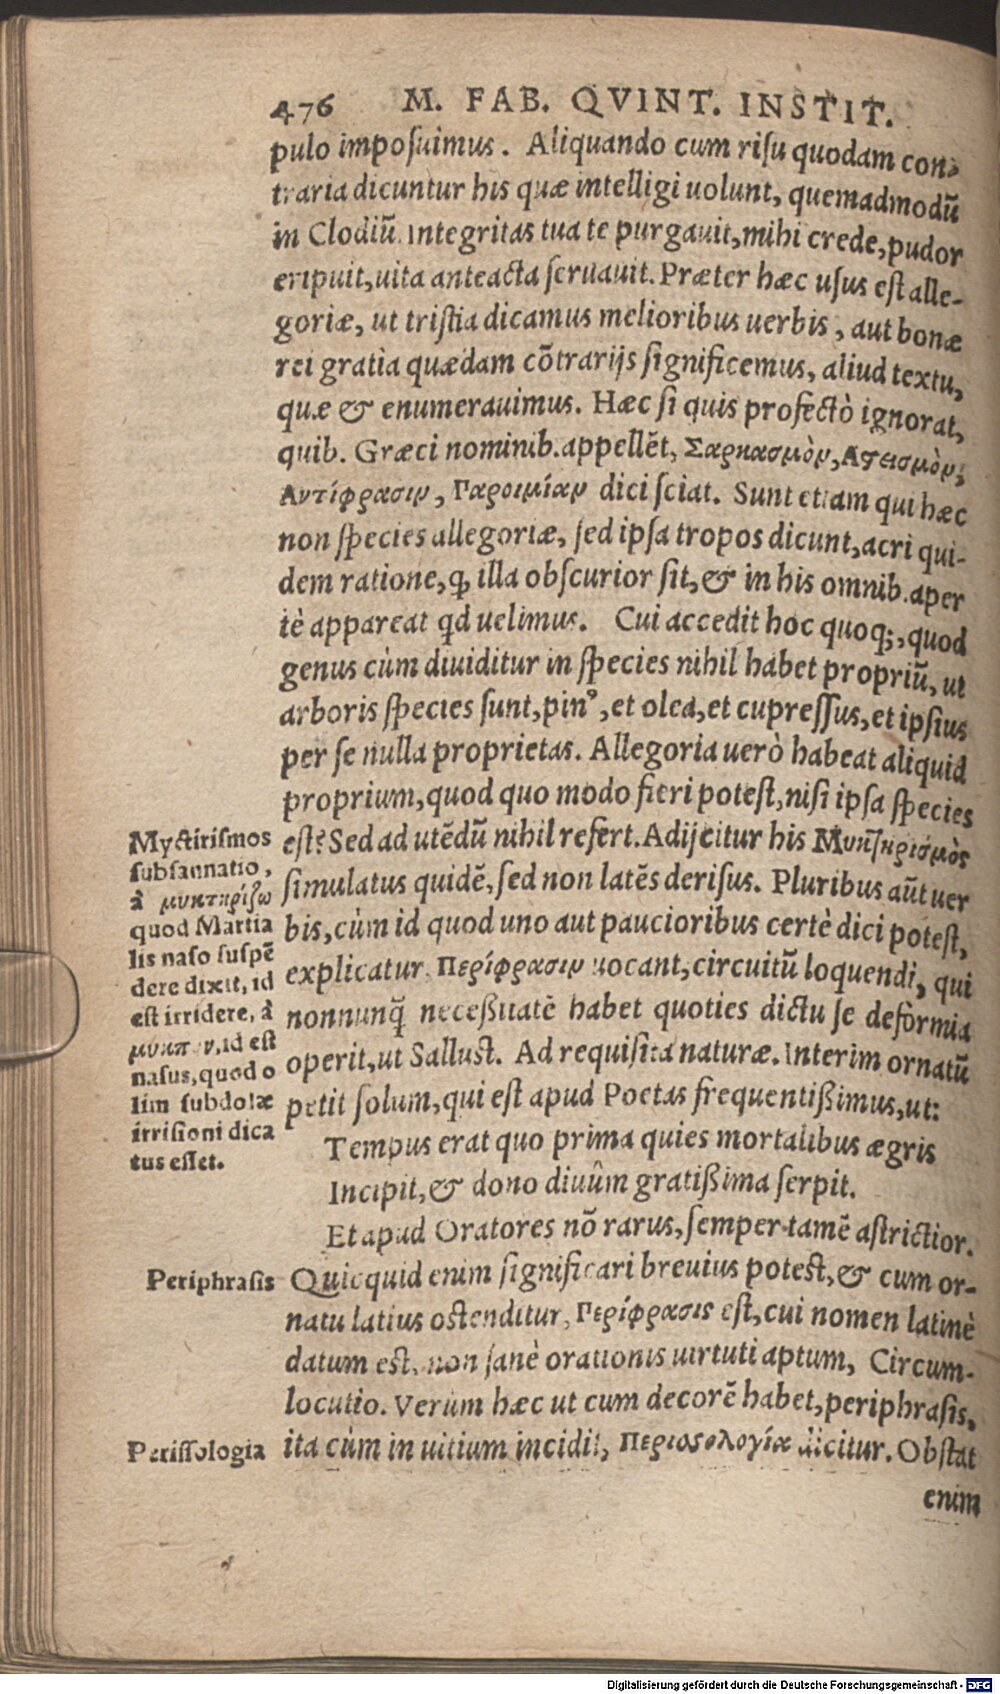 476 M. FAB. QVINT. INSTIT.
pulo imposuimus. Aliquando cum risu quodam con-
traria dicuntur his quæ intelligi uolunt, quemadmodũ
in Clodiũ. Integritas tua te purgauit, mihi crede, pudor
eripuit, uita anteacta seruauit. Præter hæc usus est alle-
goriæ, ut tristia dicamus melioribus uerbis, aut bonæ
rei gratia quædam cõtrarijs significemus, aliud textu,
quæ & enumerauimus. Hæc si quis profectò ignorat,
quib. Græci nominib. appellẽt, Σαρκασμὸν, Αστεισμὸν,
Αντίφρασιν, Παροιμίαν dici sciat. Sunt etiam qui hæc
non species allegoriæ, sed ipsa tropos dicunt, acri qui-
dem ratione, ꝙ illa obscurior sit, & in his omnib. aper
tè appareat qd uelimus. Cui accedit hoc quoq;, quod
genus cùm diuiditur in species nihil habet propriũ, ut
arboris species sunt, pinꝰ, et olea, et cupressus, et ipsius
per se nulla proprietas. Allegoria uerò habeat aliquid
proprium, quod quo modo fieri potest, nisi ipsa species
est? Sed ad utẽdũ nihil refert. Adijcitur his Μυκτηρισμὸς
simulatus quidẽ, sed non latẽs derisus. Pluribus aũt uer
bis, cùm id quod uno aut paucioribus certè dici potest,
explicatur. Περίφρασιν uocant, circuitũ loquendi, qui
nonnunq̃ necessitatẽ habet quoties dictu se deformia
operit, ut Sallust. Ad requisita naturæ. Interim ornatũ
petit solum, qui est apud Poetas frequentissimus, ut:
Tempus erat quo prima quies mortalibus ægris
Incipit, & dono diuûm gratissima serpit.
Et apud Oratores nõ rarus, semper tamẽ astrictior.
Quicquid enim significari breuius potest, & cum or-
natu latius ostenditur, Περίφρασις est, cui nomen latinè
datum est, non sanè orationis uirtuti aptum, Circum-
locutio. Verùm hæc ut cum decorẽ habet, periphrasis,
ita cùm in uitium incidit, Περισσολογία dicitur. Obstat
enim
Myctirismos
subsannatio,
à μυκτηρίζω
quod Martia
lis naso suspẽ
dere dixit, id
est irridere, à
id est
nasus, quod o
lim subdolæ
irrisioni dica
tus esset.
Periphrasis
Perissologia
Digitalisierung gefördert durch die Deutsche Forschungsgemeinschaft - DFG